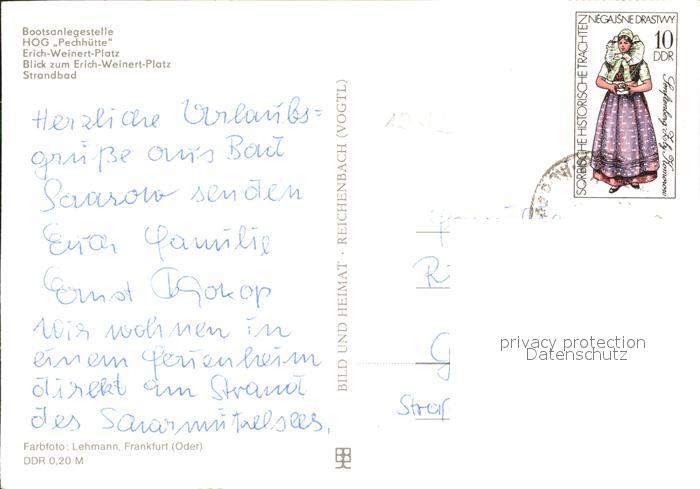 Bootsanlegestelle
HOG „Pechhütte"
Erich-Weinert-Platz
Blick zum Erich-Weinert-Platz
Strandbad
Herzliche Urlaubs=
grüße aus Bad
Saarow senden
Euch Familie
Ernst Prokop
Wir wohnen in
einem Ferienheim
direkt am Strand
des Scharmützelsees.
Farbfoto: Lehmann, Frankfurt (Oder)
DDR 0,20 M
BILD UND HEIMAT · REICHENBACH (VOGTL)
SORBISCHE HISTORISCHE TRACHTEN
NĚGAJŠNE DRASTWY
10
DDR
Straß
privacy protection
Datenschutz